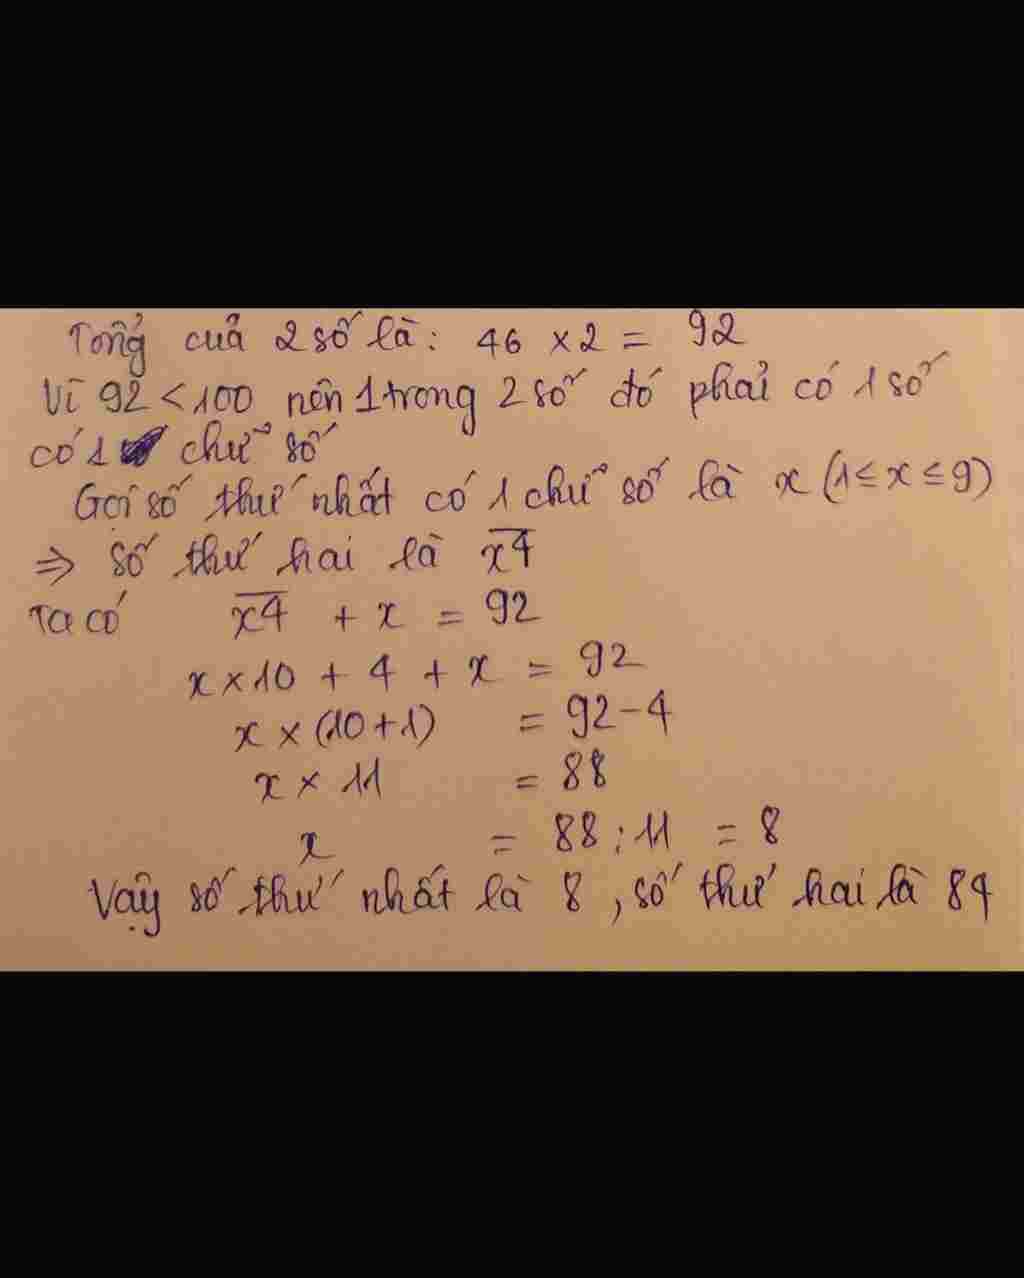 Tổng của 2 số là: 46 × 2 = 92
Vì 92 < 100 nên 1 trong 2 số đó phải có 1 số
có 1 chữ số
Gọi số thứ nhất có 1 chữ số là x (1 ≤ x ≤ 9)
⇒ số thứ hai là x̅4̅
Ta có x̅4̅ + x = 92
x × 10 + 4 + x = 92
x × (10 + 1) = 92 - 4
x × 11 = 88
x = 88 : 11 = 8
Vậy số thứ nhất là 8, số thứ hai là 84